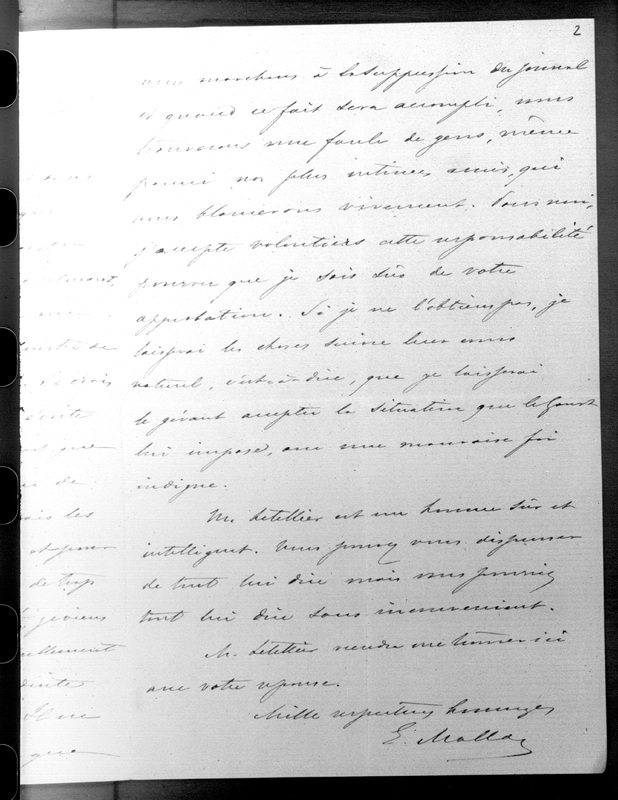 2
nous marchons à la suppression du journal
et quand ce fait sera accompli, nous
trouverons une foule de gens, même
parmi nos plus intimes amis, qui
nous blamerons vivement. Pour moi,
j'accepte volontiers cette responsabilité
pourvu que je sois sûr de votre
approbation. Si je ne l'obtiens pas, je
laisserai les choses suivre leur cours
naturel, c'est-à-dire, que je laisserai
le gérant accepter la situation que le
lui impose, avec une mauvaise foi
indigne.
M. Letellier est un homme sûr et
intelligent. Vous pouvez vous dispenser
de tout lui dire mais vous pourriez
tout lui dire sans inconvenient.
M. Letellier viendra me trouver ici
avec votre réponse.
Mille respectueux hommages
E.
que
de
droite
que
de
les
de trop
que